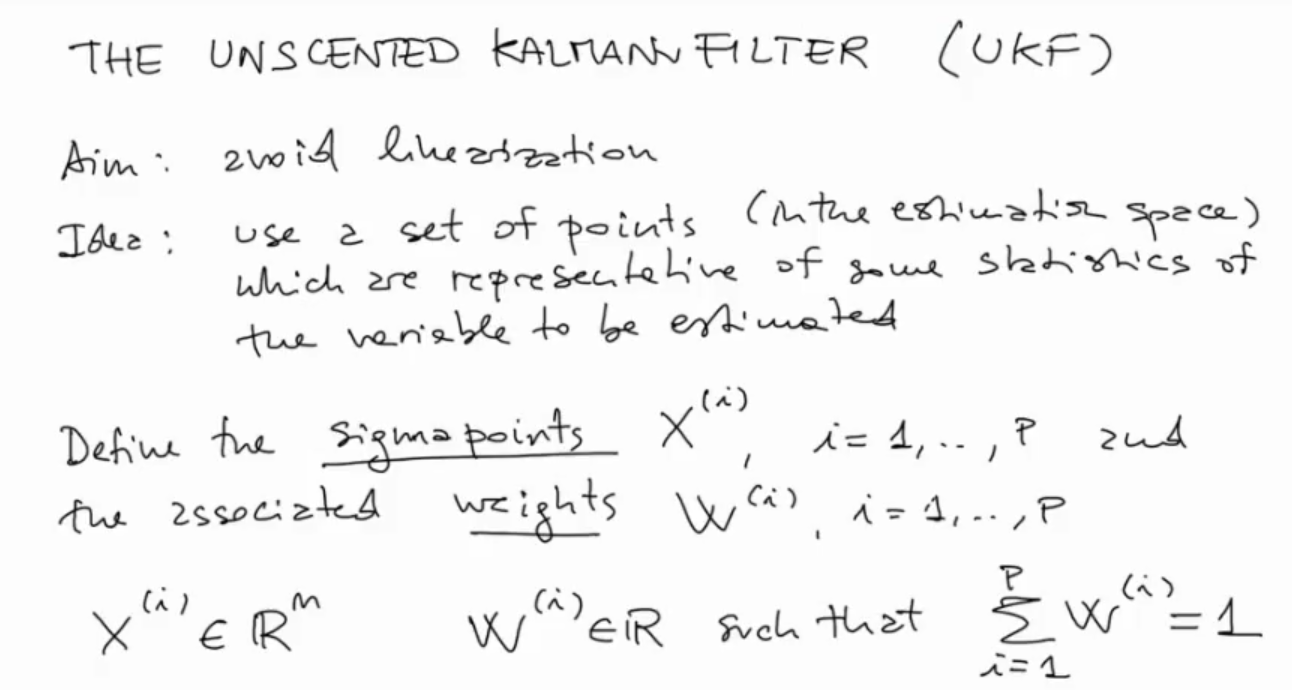 THE UNSCENTED KALMAN FILTER (UKF)
Aim: avoid linearization
Idea: use a set of points (in the estimation space)
which are representative of some statistics of
the variable to be estimated
Define the sigma points X^(i), i = 1, .., P and
the associated weights W^(i), i = 1, .., P
X^(i) ∈ ℝ^n W^(i) ∈ ℝ such that ∑_{i=1}^{P} W^(i) = 1